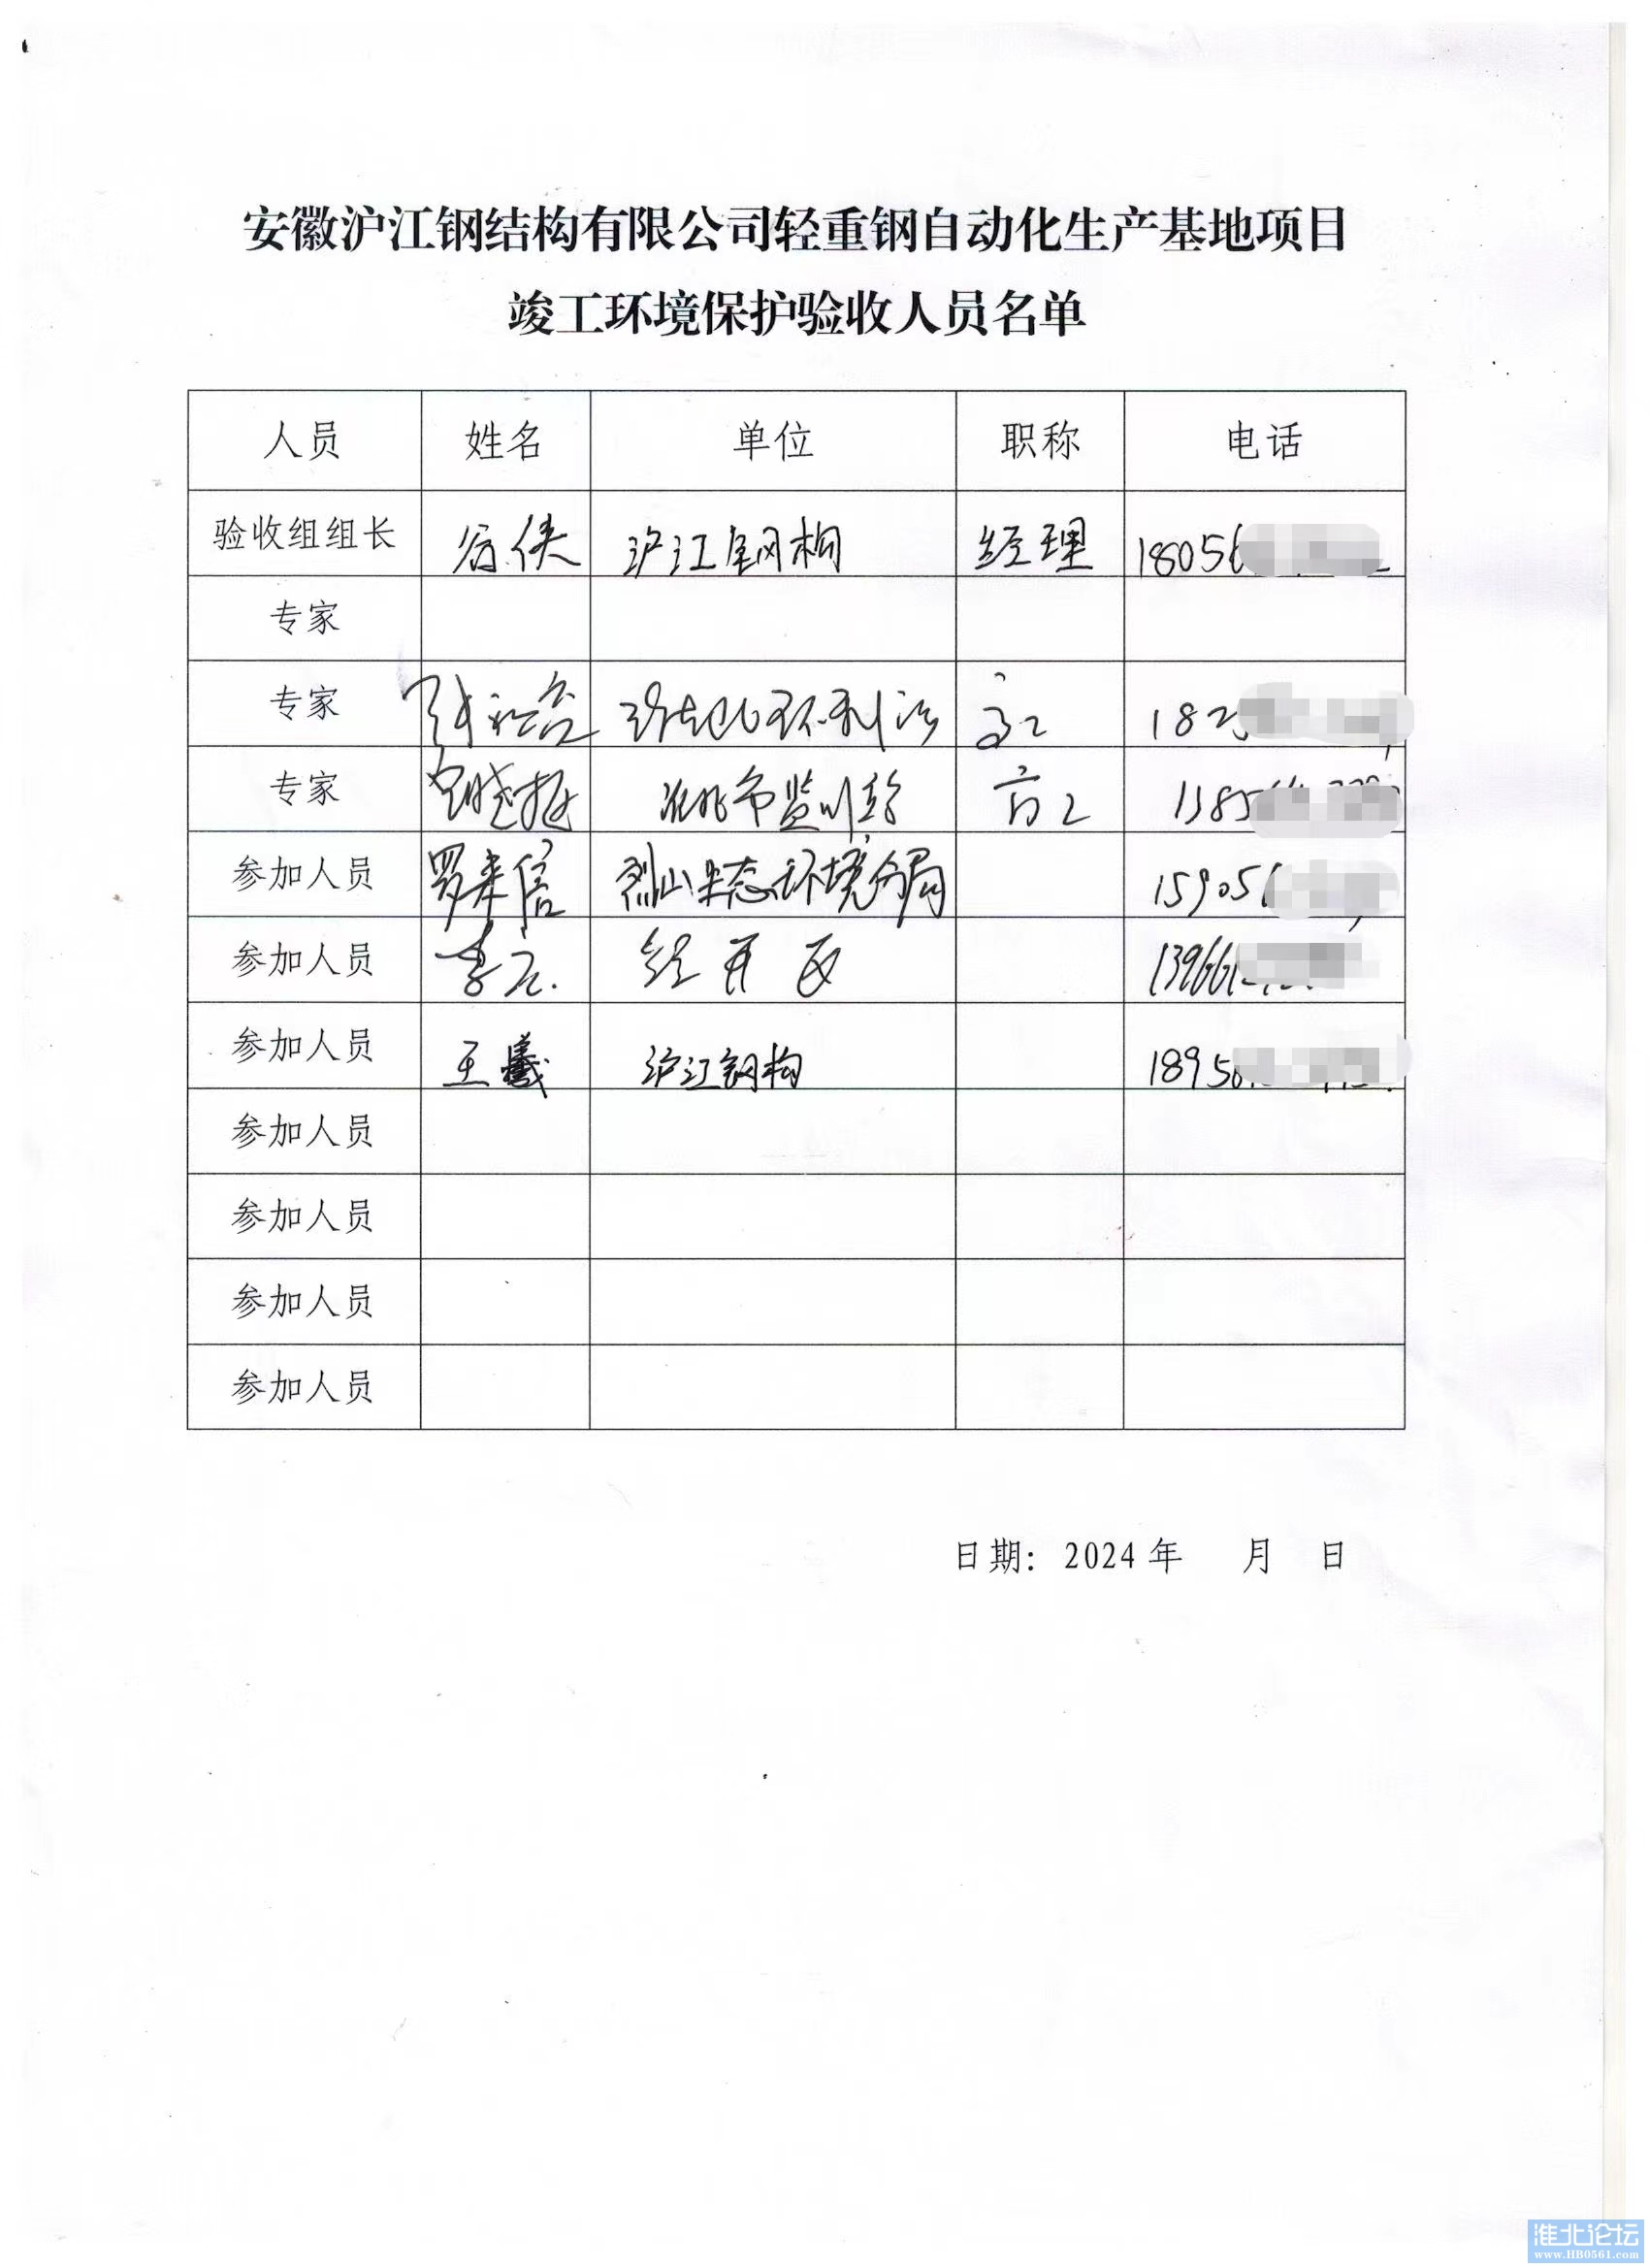 安徽沪江钢结构有限公司轻重钢自动化生产基地项目
竣工环境保护验收人员名单
人员 姓名 单位 职称 电话
验收组组长 沪江钢构 经理 18056
专家
专家 高工 182
专家 淮北市监测站 高工 1385
参加人员 罗来信 烈山生态环境分局 15905
参加人员 李 经开区 13966
参加人员 王曦 沪江钢构 18956
参加人员
参加人员
参加人员
参加人员
日期：2024年 月 日
淮北论坛
www.HB0561.com